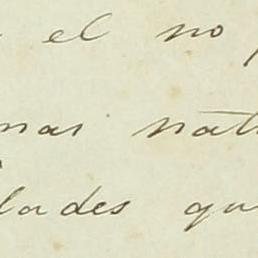 el no
mas nat
lades qu